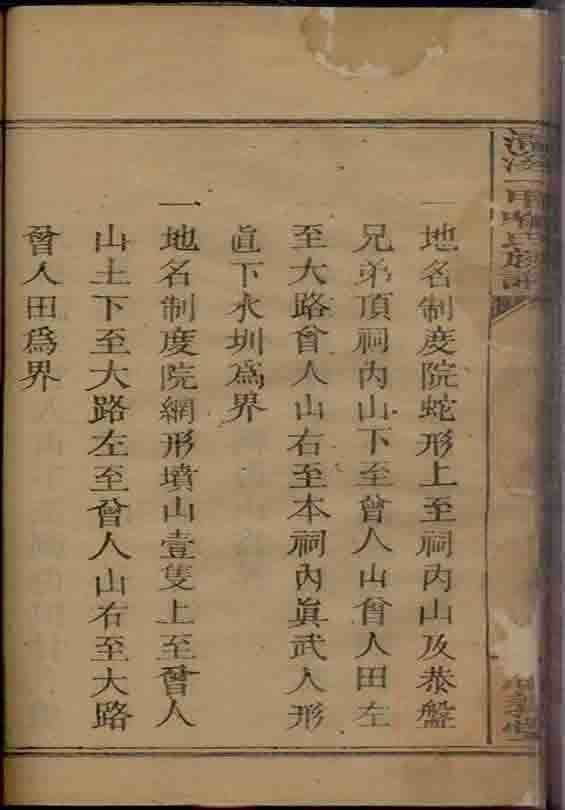 一地名制度院蛇形上至祠內山及恭盤
兄弟頂祠內山下至曾人山曾人田左
至大路曾人山右至本祠內眞武人形
直下水圳爲界
一地名制度院網形墳山壹隻上至曾人
山土下至大路左至曾人山右至大路
曾人田爲界